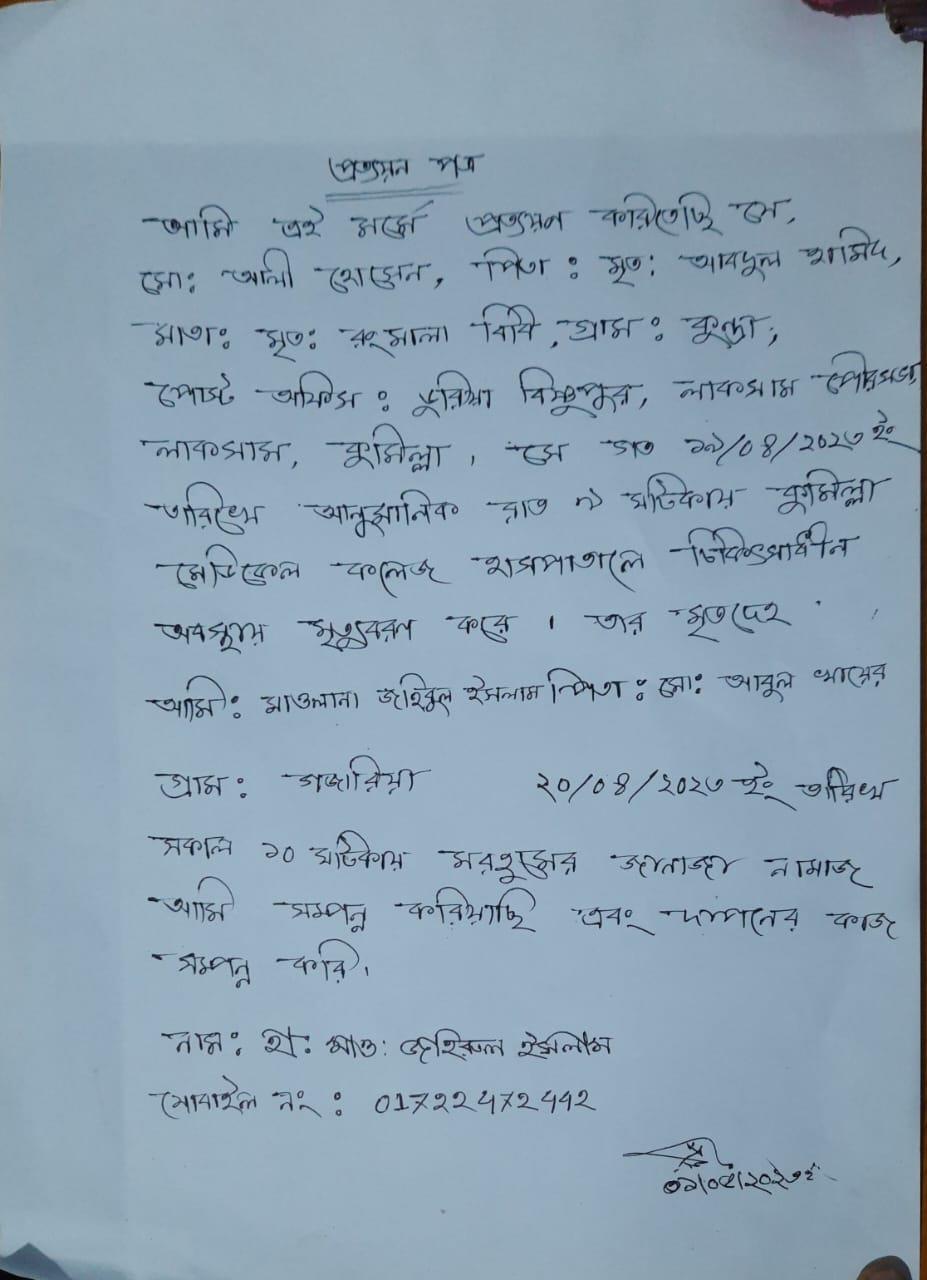 প্রত্যয়ন পত্র
আমি এই মর্মে প্রত্যয়ন করিতেছি যে,
মো: আলী হোসেন, পিতা : মৃত: আবদুল হামিদ,
মাতা: মৃত: রংমালা বিবি, গ্রাম : কুন্দ্রা,
পোস্ট অফিস : ভুরিয়া বিষ্ণুপুর, লাকসাম পৌরসভা,
লাকসাম, কুমিল্লা, সে গত ১৯/০৪/২০২৩ ইং
তারিখে আনুমানিক রাত ৯ ঘটিকায় কুমিল্লা
মেডিকেল কলেজ হাসপাতালে চিকিৎসাধীন
অবস্থায় মৃত্যুবরণ করে। তার মৃতদেহ
আমি: মাওলানা জহিরুল ইসলাম পিতা: মো: আবুল খায়ের
গ্রাম: গজারিয়া ২০/০৪/২০২৩ ইং তারিখ
সকাল ১০ ঘটিকায় মরহুমের জানাজা নামাজ
আমি সম্পন্ন করিয়াছি এবং দাপনের কাজ
সম্পন্ন করি।
নাম: হা: মাও: জহিরুল ইসলাম
মোবাইল নং : 01722472442